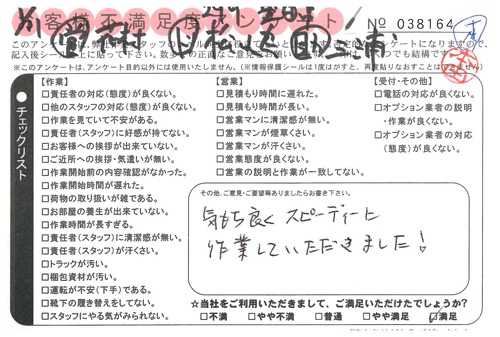 お客様不満足度アンケート
№ 038164
このアンケートは、弊社
※このアンケートは、アンケート目的以外には使用いたしません。(※情報保護シールは1度はがすと、再度貼りなおすことはできません)
チェックリスト
【作業】
□責任者の対応(態度)が良くない。
□他のスタッフの対応(態度)が良くない。
□作業を見ていて不安がある。
□責任者(スタッフ)に好感が持てない。
□お客様への挨拶が出来ていない。
□ご近所への挨拶・気遣いが無い。
□作業開始前の内容確認がなかった。
□作業開始時間が遅れた。
□荷物の取り扱いが雑である。
□お部屋の養生が出来ていない。
□作業時間が長すぎる。
□責任者(スタッフ)に清潔感が無い。
□責任者(スタッフ)が汗くさい。
□トラックが汚い。
□梱包資材が汚い。
□運転が不安(下手)である。
□靴下の履き替えをしてない。
□スタッフにやる気がみられない。
【営業】
□見積もり時間に遅れた。
□見積もり時間が長い。
□営業マンに清潔感が無い。
□営業マンが煙草くさい。
□営業マンが汗くさい。
□営業態度が良くない。
□営業の説明と作業が一致してない。
【受付・その他】
□電話の対応が良くない。
□オプション業者の説明
・作業が良くない。
□オプション業者の対応
(態度)が良くない。
その他、ご意見・ご要望等ありましたらお書き下さい。
気持ち良く スピーディーに
作業していただきました!
☆当社をご利用いただきまして、ご満足いただけたでしょうか?
□不満 □やや不満 □普通 □やや満足 ☑満足